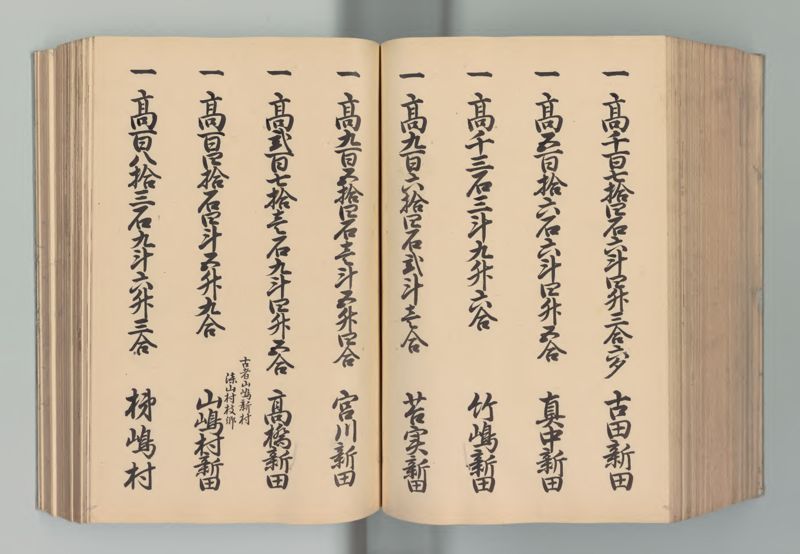 一 高千百七拾四石六斗四升三合六夕 古田新田
一 高五百拾六石六斗四升五合 真中新田
一 高千三石三斗九升六合 竹嶋新田
一 高九百六拾四石弐斗壱合 苔実新田
一 高九百五拾四石壱斗五升四合 宮川新田
一 高弐百七拾壱石九斗四升五合 高橋新田
古者山嶋新村
山村枝郷
一 高百四拾石四斗五升九合 山嶋村新田
一 高百八拾三石九斗六升三合 梯嶋村